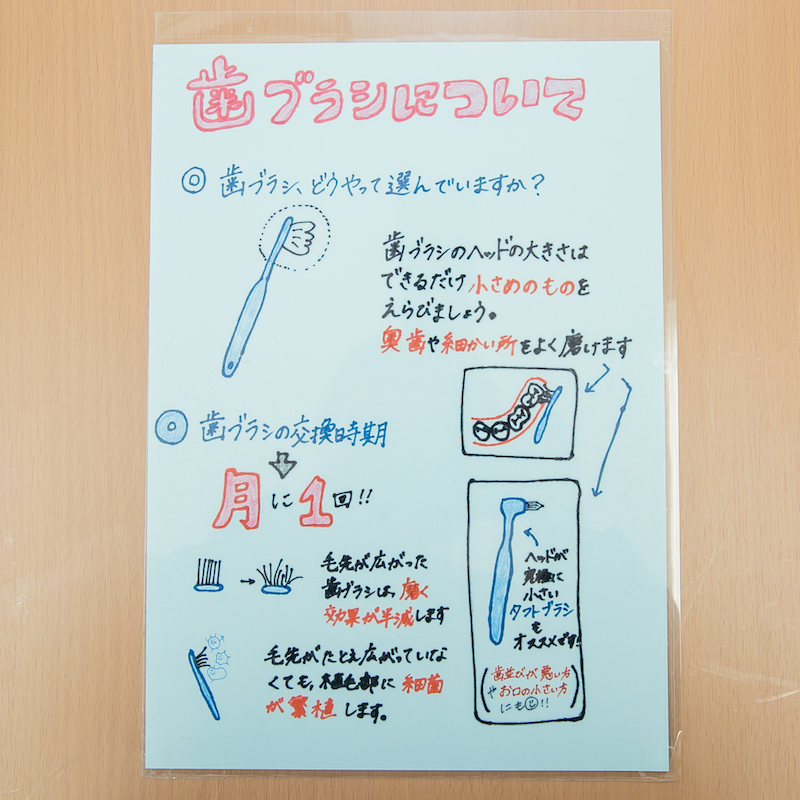 歯ブラシについて
◎ 歯ブラシ、どうやって選んでいますか？
歯ブラシのヘッドの大きさは
できるだけ小さめのものを
えらびましょう。
奥歯や細かい所をよく磨けます
◎ 歯ブラシの交換時期
月に1回!!
毛先が広がった
歯ブラシは、磨く
効果が半減します
毛先がたとえ広がっていな
くても、植毛部に細菌
が繁殖します。
ヘッドが
究極に
小さい
タフトブラシ
を
オススメです!
(歯並びが悪い方
やお口の小さい方
にも☺!!)